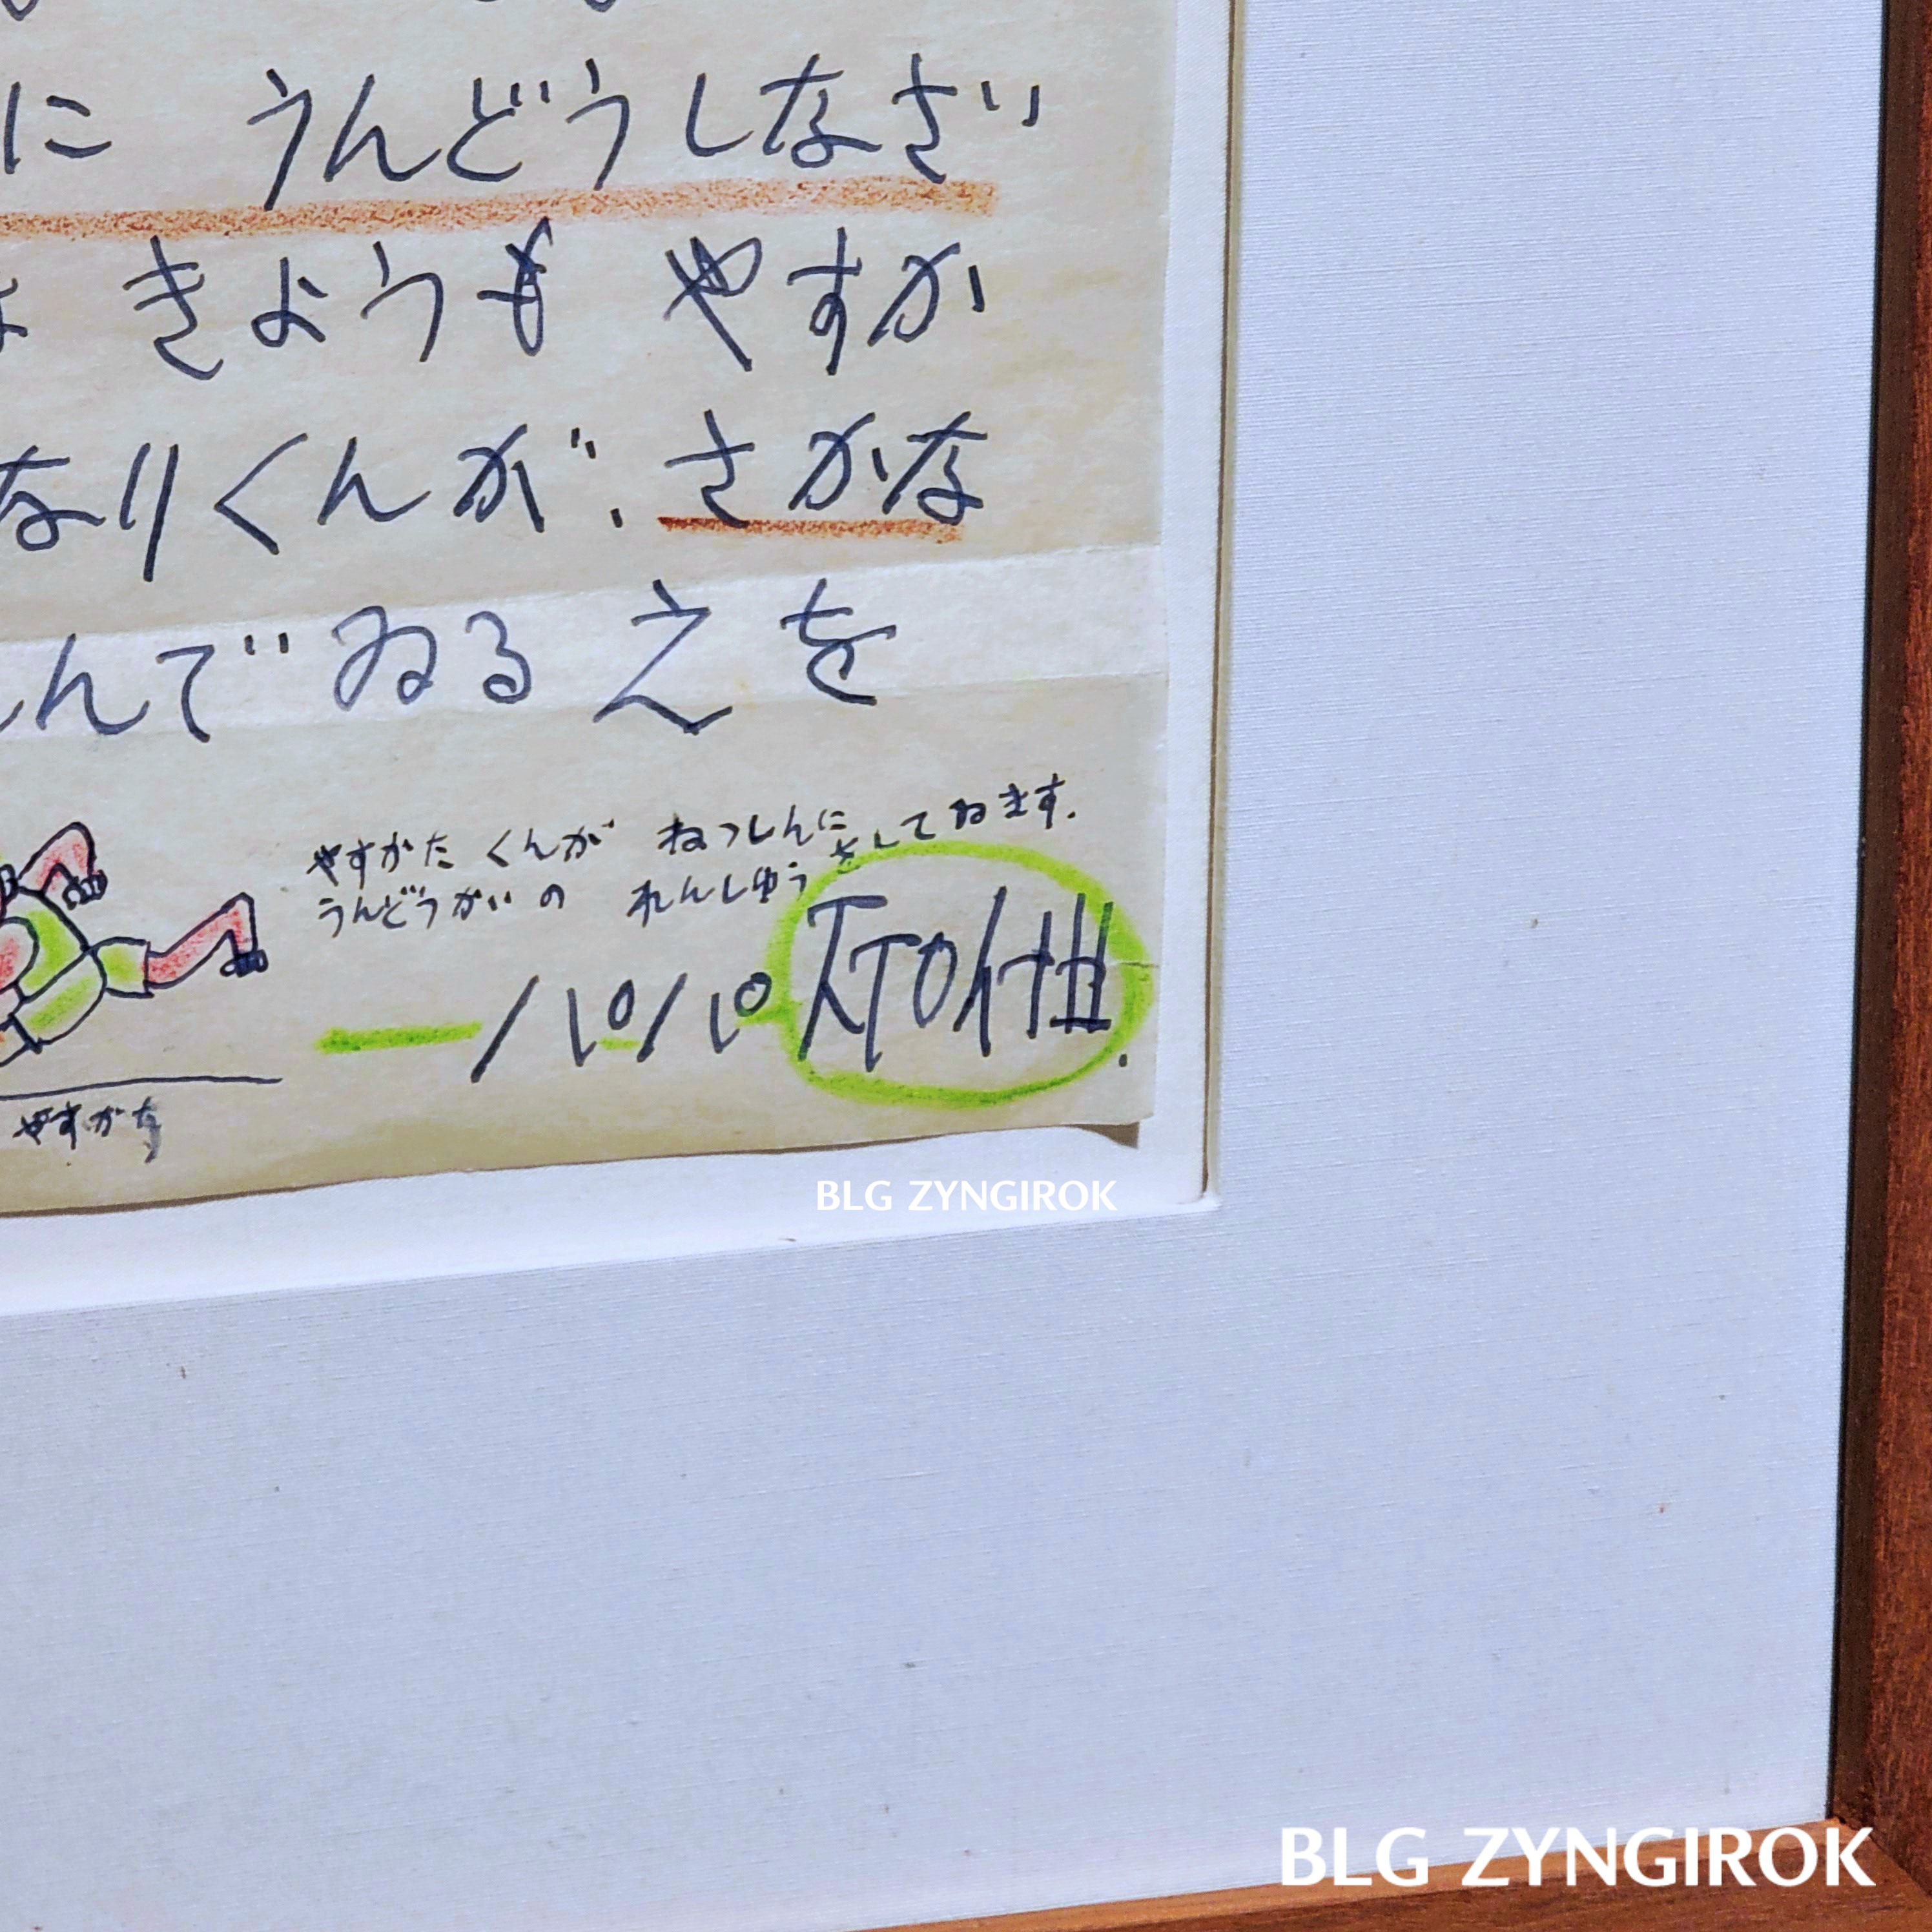 に うんどうしなさい
きようも やすか
なりくんが、さかな
んで ゐる 之を
やすかた くんが ねつしんに
うんどうかいの れんしゆうをして ゐます.
パパ ЛТОЛ 출.
やすかた
BLG ZYNGIROK
BLG ZYNGIROK